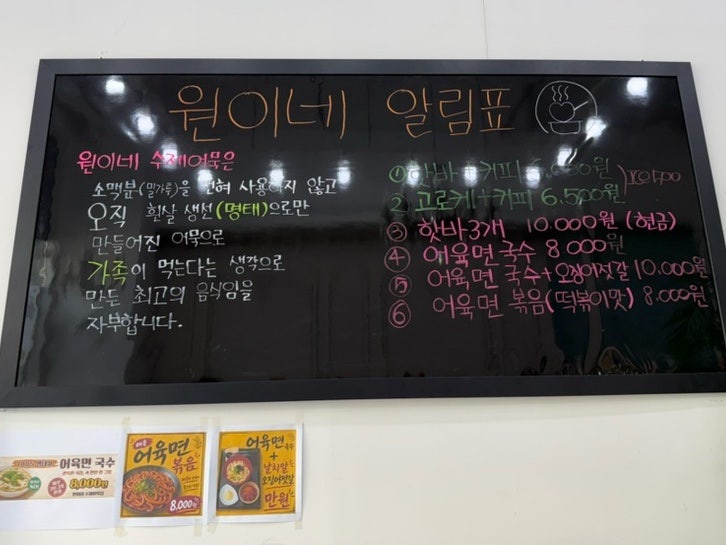 원이네 알림표
원이네 수제어묵은
소맥분(밀가루)을 전혀 사용하지 않고
오직 흰살 생선(명태)으로만
만들어진 어묵으로
가족이 먹는다는 생각으로
만든 최고의 음식임을
자부합니다.
① 핫바+커피 원
② 고로케+커피 6.500원
③ 핫바3개 10.000원 (현금)
④ 어육면 국수 8000원
⑤ 어육면 국수+오징어젓갈 10.000원
⑥ 어육면 볶음(떡볶이맛) 8.000원
어육면 국수
8,000원
어육면
볶음
8,000원
어육면 국수
+
날치알
오징어젓갈
만원